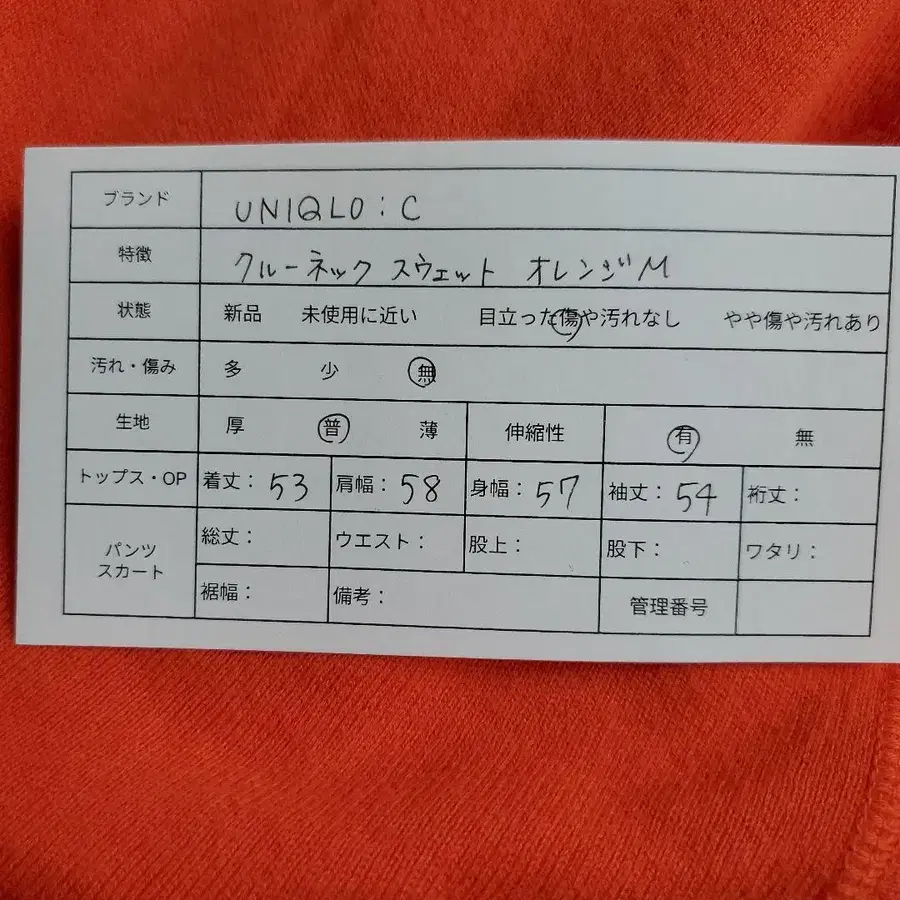 ブランド UNIQLO:C
特徴 クルーネック スウェット オレンジM
状態 新品 未使用に近い 目立った傷や汚れなし やや傷や汚れあり
汚れ・傷み 多 少 無
生地 厚 普 薄 伸縮性 有 無
トップス・OP 着丈: 53 肩幅: 58 身幅: 57 袖丈: 54 裄丈:
パンツ スカート 総丈: ウエスト: 股上: 股下: ワタリ:
裾幅: 備考: 管理番号